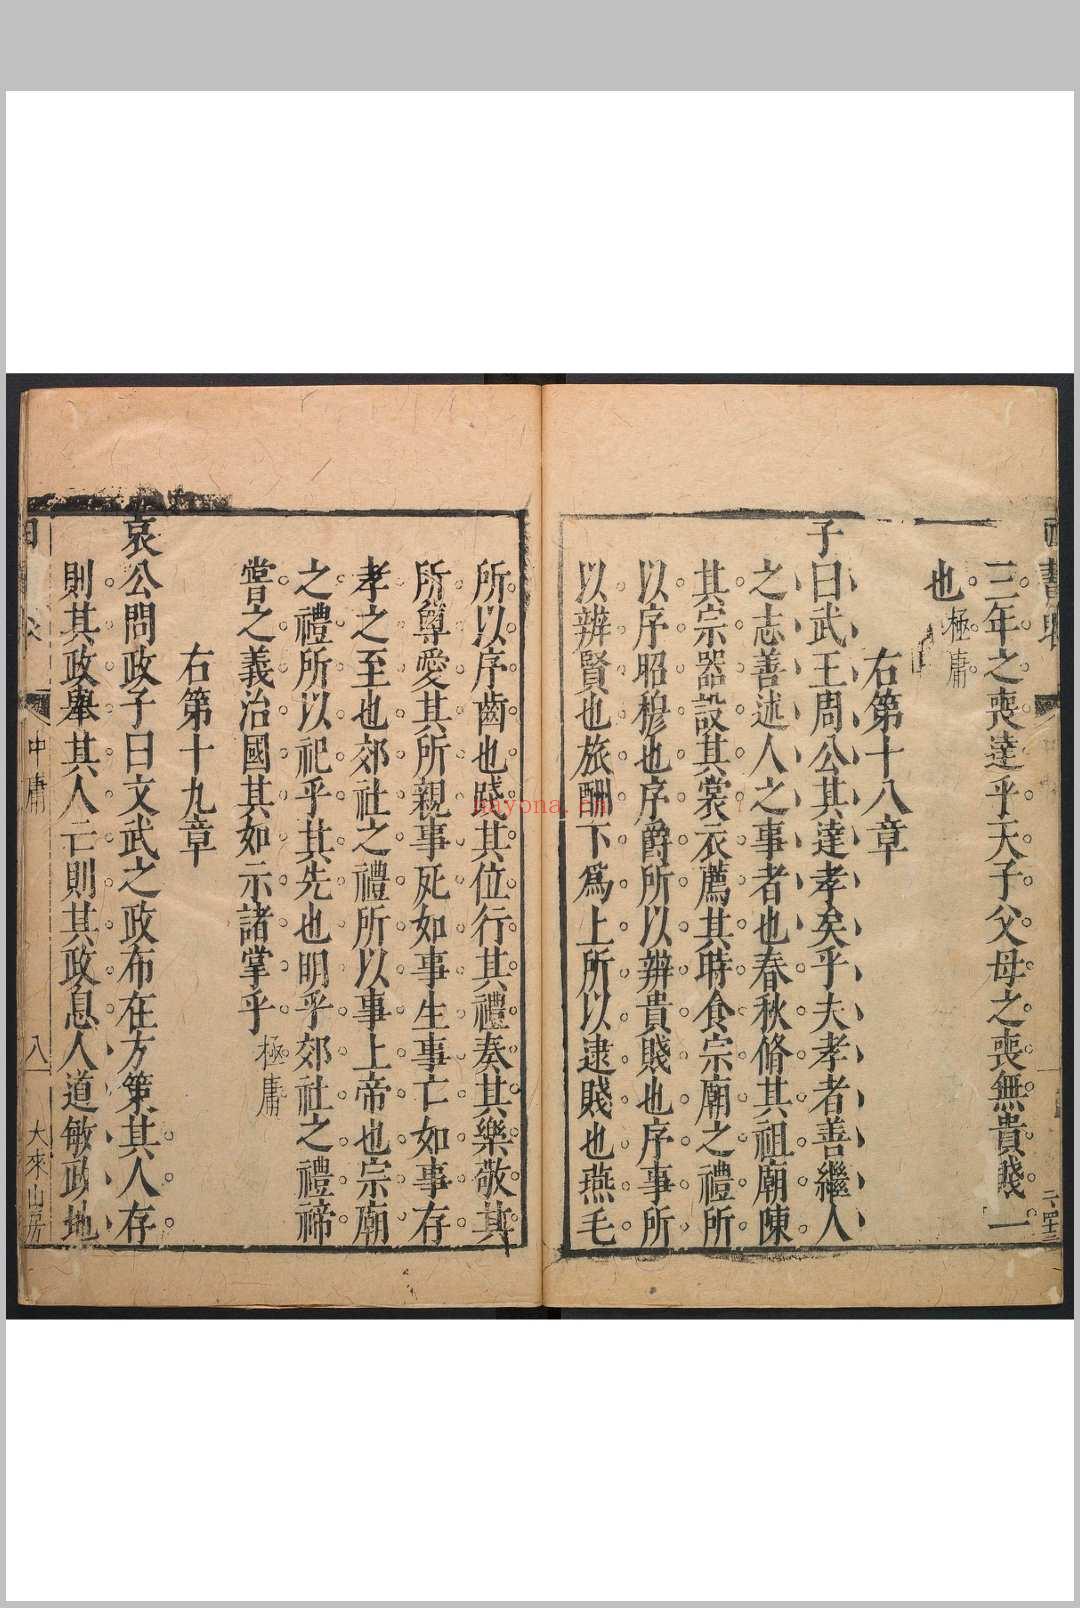 三年之喪達乎天子父母之喪無貴賤一
也極庸
右第十八章
子曰武王周公其達孝矣乎夫孝者善繼人
之志善述人之事者也春秋脩其祖廟陳
其宗器設其裳衣薦其時食宗廟之禮所
以序昭穆也序爵所以辨貴賤也序事所
以辨賢也旅酬下爲上所以逮賤也燕毛
所以序齒也踐其位行其禮奏其樂敬其
所尊愛其所親事死如事生事亡如事存
孝之至也郊社之禮所以事上帝也宗廟
之禮所以祀乎其先也明乎郊社之禮禘
嘗之義治國其如示諸掌乎極庸
右第十九章
哀公問政子曰文武之政布在方策其人存
則其政舉其人亡則其政息人道敏政地
中庸
八
大來山房
nayona.cn